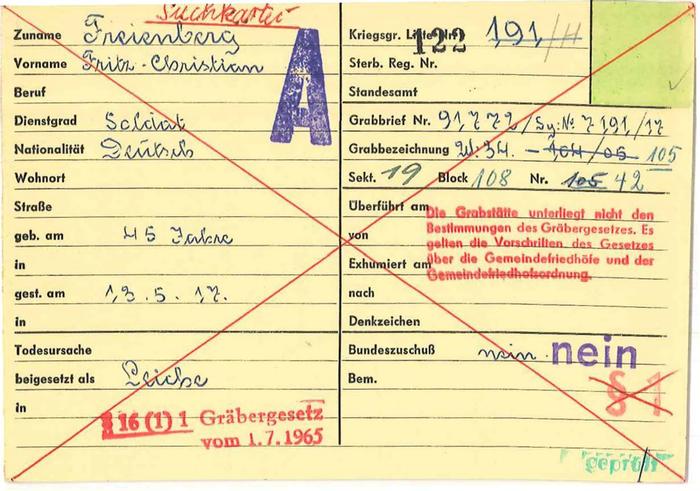 Suchkartei
Zuname Freienberg
Vorname Fritz-Christian
Beruf
Dienstgrad Soldat
Nationalität Deutsch
Wohnort
Straße
geb. am 45 Jahre
in
gest. am 13.5.17.
in
Todesursache
beigesetzt als Leiche
in
A
§ 16 (1) 1 Gräbergesetz
vom 1.7.1965
Kriegsgr. Liste Nr. 122 191/H
Sterb. Reg. Nr.
Standesamt
Grabbrief Nr. 91772/Sy: № 7191/17
Grabbezeichnung W. 34. 104/05 105
Sekt. 19 Block 108 Nr. 105 42
Überführt am
von
Exhumiert am
nach
Die Grabstätte unterliegt nicht den
Bestimmungen des Gräbergesetzes. Es
gelten die Vorschriften des Gesetzes
über die Gemeindefriedhöfe und der
Gemeindefriedhofsordnung.
Denkzeichen
Bundeszuschuß nein nein
Bem.
§ 1
geprüft